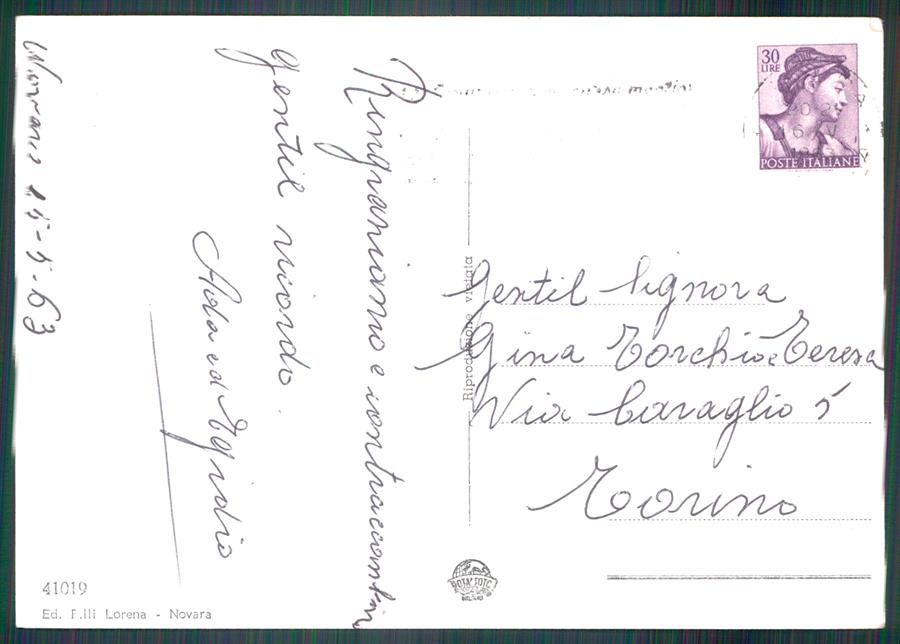 Novara 15-5-63
Ringraziamo e contraccambi
gentil ricordo.
Ada ed Egidio
30
LIRE
POSTE ITALIANE
Gentil Signora
Gina Torchio e Teresa
Via Caraglio 5
Torino
Riproduzione vietata
ROTALFOTO
41019
Ed. F.lli Lorena - Novara